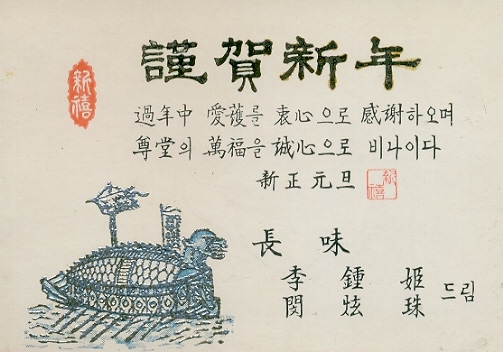 謹賀新年
新禧
過年中 愛護를 衷心으로 感謝하오며
尊堂의 萬福을 誠心으로 비나이다
新正元旦
長 味
李 鍾 姬
閔 炫 珠 드림